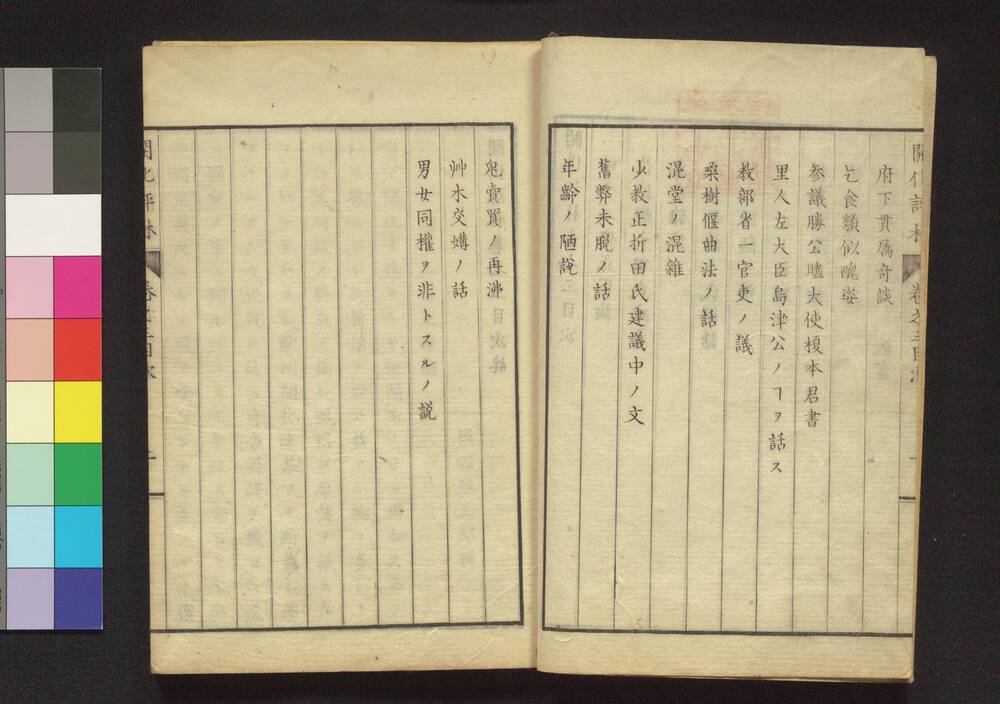 府下貫属奇談
乞食類似醜姿
参議勝公贐大使榎本君書
里人左大臣島津公ノヿヲ話ス
教部省一官吏ノ議
桑樹偃曲法ノ話
混堂ノ混雑
少教正折田氏建議中ノ文
舊弊未脱ノ話
年齢ノ陋説
兎賣買ノ再沸
艸木交媾ノ話
男女同權ヲ非トスルノ説